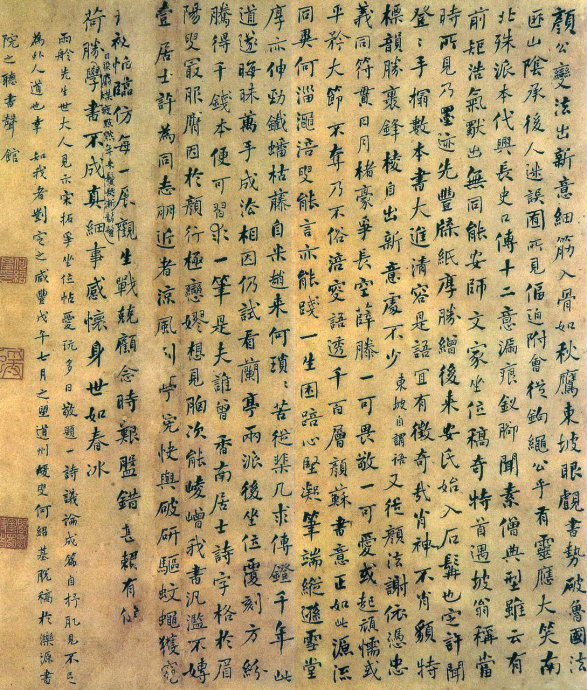 顏公變法出新意細筋入骨如秋鷹東坡眼觀書勢破魯國法
匪山陰承後人迷誤面所見偪迫附會從鉤繩公乎有靈應大笑南
北殊派本代興長史口傳十二意漏痕釵脚聞素僧典型雖云有
前矩浩氣出無同能安師文家坐位稿奇特首遇坡翁稱當
時所見乃墨迹先豐牋紙厚勝繒後來安氏始入石髯也定許聞
登〻手搨數本書大進清容是語宜有徵奇哉肖神不肖貌特
標韻勝裹鋒棱自出新意處不少東坡自謂語又從顏法謝依憑忠
義同符貫日月楮豪爭長空薛滕一可畏敬一可愛或起頑懦或
平矜大節不奪乃不俗涪叟語透千百層顏蘇書意正如此源流
同異何淄澠涪叟能言亦能踐一生困踣心堅凝筆端縱遜雪堂
厚亦伸勁鐵蟠枯藤自米趙來何瑣〻苦從棐几求傳鐙千年此
道遂晦昧萬手成法相因仍試看蘭亭兩派後坐位覆刻方紛
騰得千錢本便可習求一筆是夫誰曾香南居士詩字格於眉
陽叟最服膺因於顏行極戀嫪想見胸次能崚嶒我書汎濫不專
壹居士許為同志朋近者涼風引快與破研驅蚊蠅獲窺
秘怕臨仿每一展觀生戰兢顧念時艱盤錯甚賴有
荷勝學書不成真細事感懷身世如春冰
雨舲先生世大人見示宋拓爭坐位帖愛玩多日敬題一詩議論成篇自抒肊見不足
為外人道也幸如我者定之咸豐戊午七月之朢道州蝯叟何紹基脫稿於濼源書
院之聽書聲館